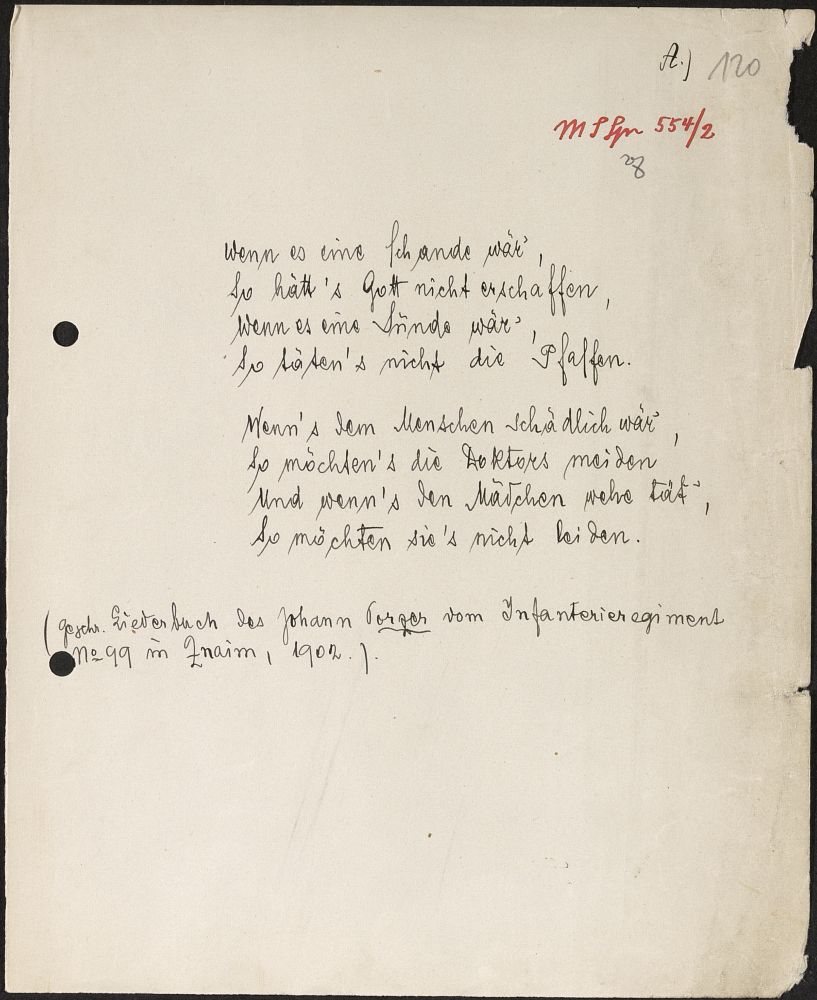 A.) 120
554/2
Wenn es eine Schande wär',
So hätt's Gott nicht erschaffen,
Wenn es eine Sünde wär',
So täten's nicht die Pfaffen.
Wenn's dem Menschen schädlich wär',
So möchten's die Doktors meiden
Und wenn's den Mädchen wehe tät',
So möchten sie's nicht leiden.
(geschr. Liederbuch des Johann Porzer vom Infanterieregiment
No 99 in Znaim, 1902.).